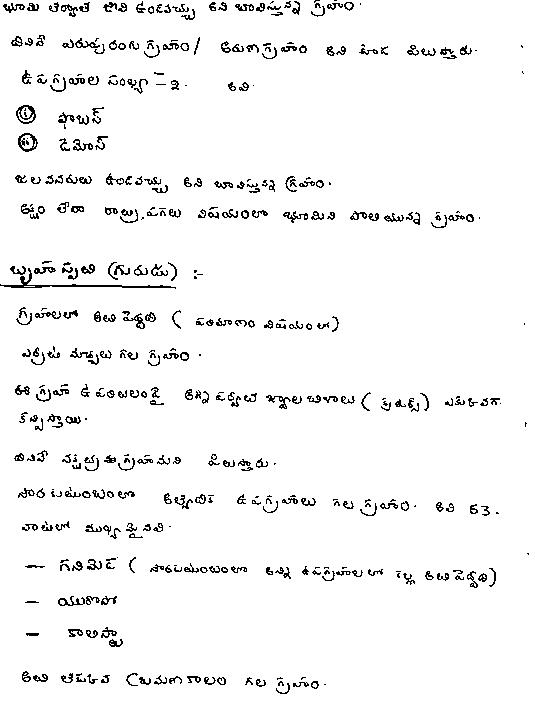 భూమి తర్వాత జీవి ఉండవచ్చు అని భావిస్తున్న గ్రహం.
దీనినే ఎరుపురంగు గ్రహం / అరుణగ్రహం అని కూడ పిలుస్తారు.
ఉపగ్రహాల సంఖ్య - 2. అవి.
(i) ఫోబస్
(ii) డైమోస్
జలవనరులు ఉండవచ్చు అని భావిస్తున్న గ్రహం.
అక్షం లేదా రాత్రు, పగలు విషయంలో భూమిని పోలియున్న గ్రహం.
బృహస్పతి (గురుడు) :-
గ్రహాలలో అతి పెద్దది ( పరిమాణం విషయంలో)
ఎర్రటి మచ్చలు గల గ్రహం.
ఈ గ్రహ ఉపరితలంపై అగ్ని పర్వత జ్వాల బిళాలు ( ) ఎక్కువగా
కన్పిస్తాయి.
దీనినే నక్షత్ర గ్రహమని పిలుస్తారు.
సౌర కుటుంబంలో అత్యధిక ఉపగ్రహాలు గల గ్రహం. అవి 63.
వాటిలో ముఖ్యమైనవి.
— గనిమెడ ( సౌరకుటుంబంలో అన్ని ఉపగ్రహాలలో కెల్ల అతిపెద్దది)
— యురోపో
— కాలిస్టా
అతి తక్కువ భ్రమణకాలం గల గ్రహం.